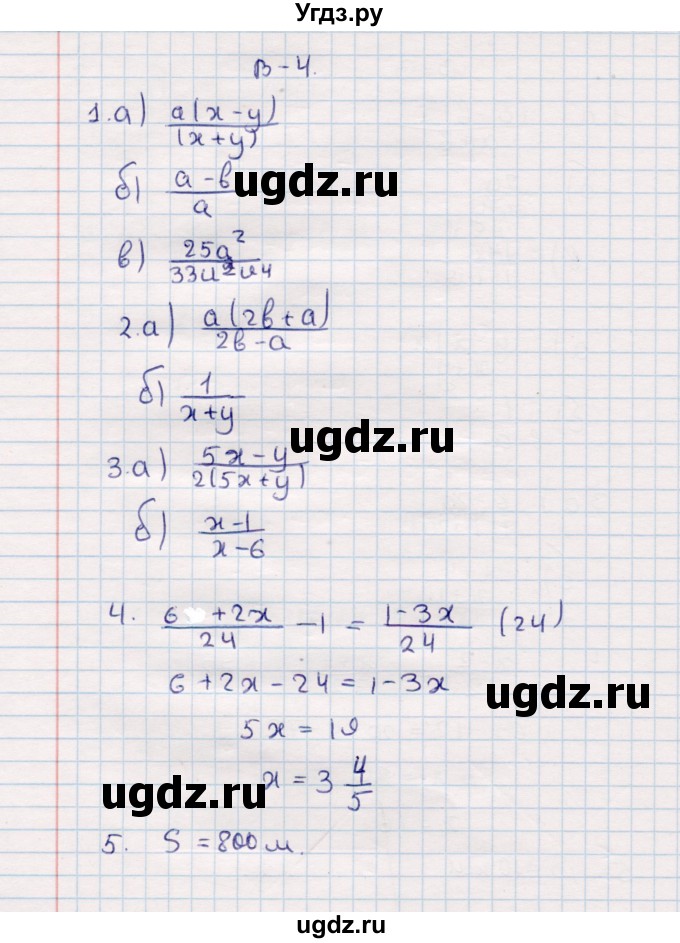 Угдз.ру
В-4.
1.а) a(x-y)/(x+y)
б) a-в/a
ugdz.ru
в) 25a²
2.а) a(2в+a)/2в-a
б) 1/x+y
ugdz.ru
3.а) 5x-y/2(5x+y)
б) x-1/x-6
4. 6 +2x/24 -1 = 1-3x/24 (24)
6+2x-24=1-3x
ugdz.ru
5x=19
x=3 4/5
ugdz.ru
5. S=800м.
ugdz.ru